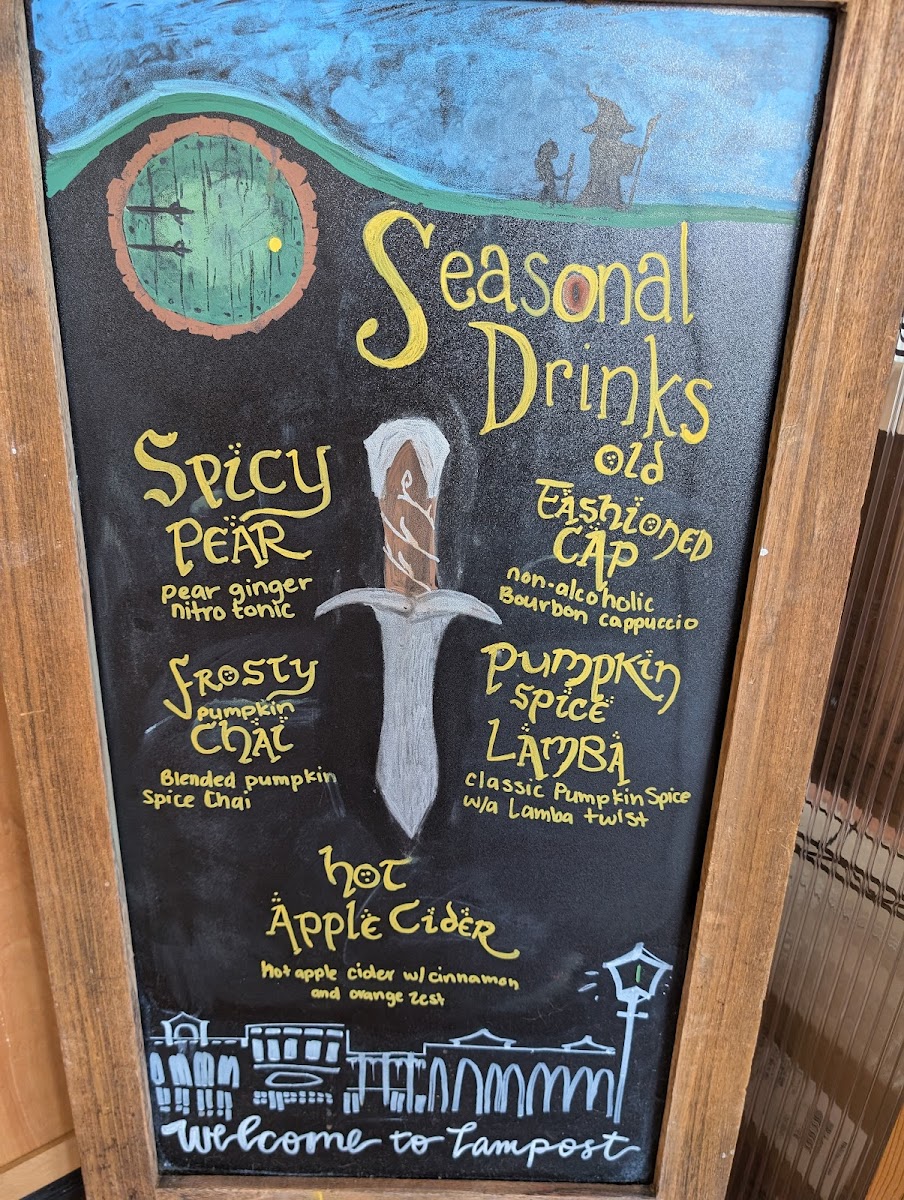 Seasonal
Drinks
Spicy
PEAR
pear ginger
nitro tonic
old
FAShioNED
CAp
non-alcoholic
Bourbon cappuccio
fROSTY
pumpkin
Chai
Blended pumpkin
Spice Chai
pumpkin
spice
LAMBA
classic Pumpkin Spice
w/a Lamba twist
hot
Apple Cider
hot apple cider w/cinnamon
and orange zest
Welcome to Lampost